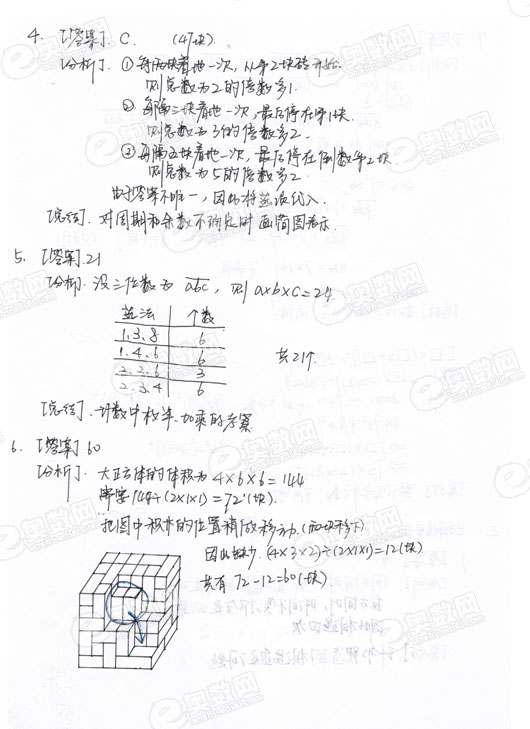 4. [答案] C. (47块)
[分析] ①每两块着地一次，从第2块砖开始.
则总数为2的倍数多1.
② 每隔三块着地一次，最后停在第1块.
则总数为3的倍数多2.
③ 每隔五块着地一次，最后停在倒数第2块.
则总数为5的倍数多2.
由于答案不唯一，因此将选项代入.
[总结]. 对周期和余数不确定时画简图表示.
5. [答案] 21
[分析]. 设三位数为 abc, 则 a×b×c=24.
选法 个数
1.3.8 6
1.4.6 6
2.2.6 3
2.3.4 6
共21个.
[总结]. 计数中枚举.加乘的考察
6. [答案] 60
[分析]. 大正方体的体积为 4×6×6=144
需要144÷(2×1×1)=72(块).
把图中积木的位置稍微移动.(两块移下)
因此缺少 (4×3×2)÷(2×1×1)=12(块)
共有 72-12=60(块)
e奥数网